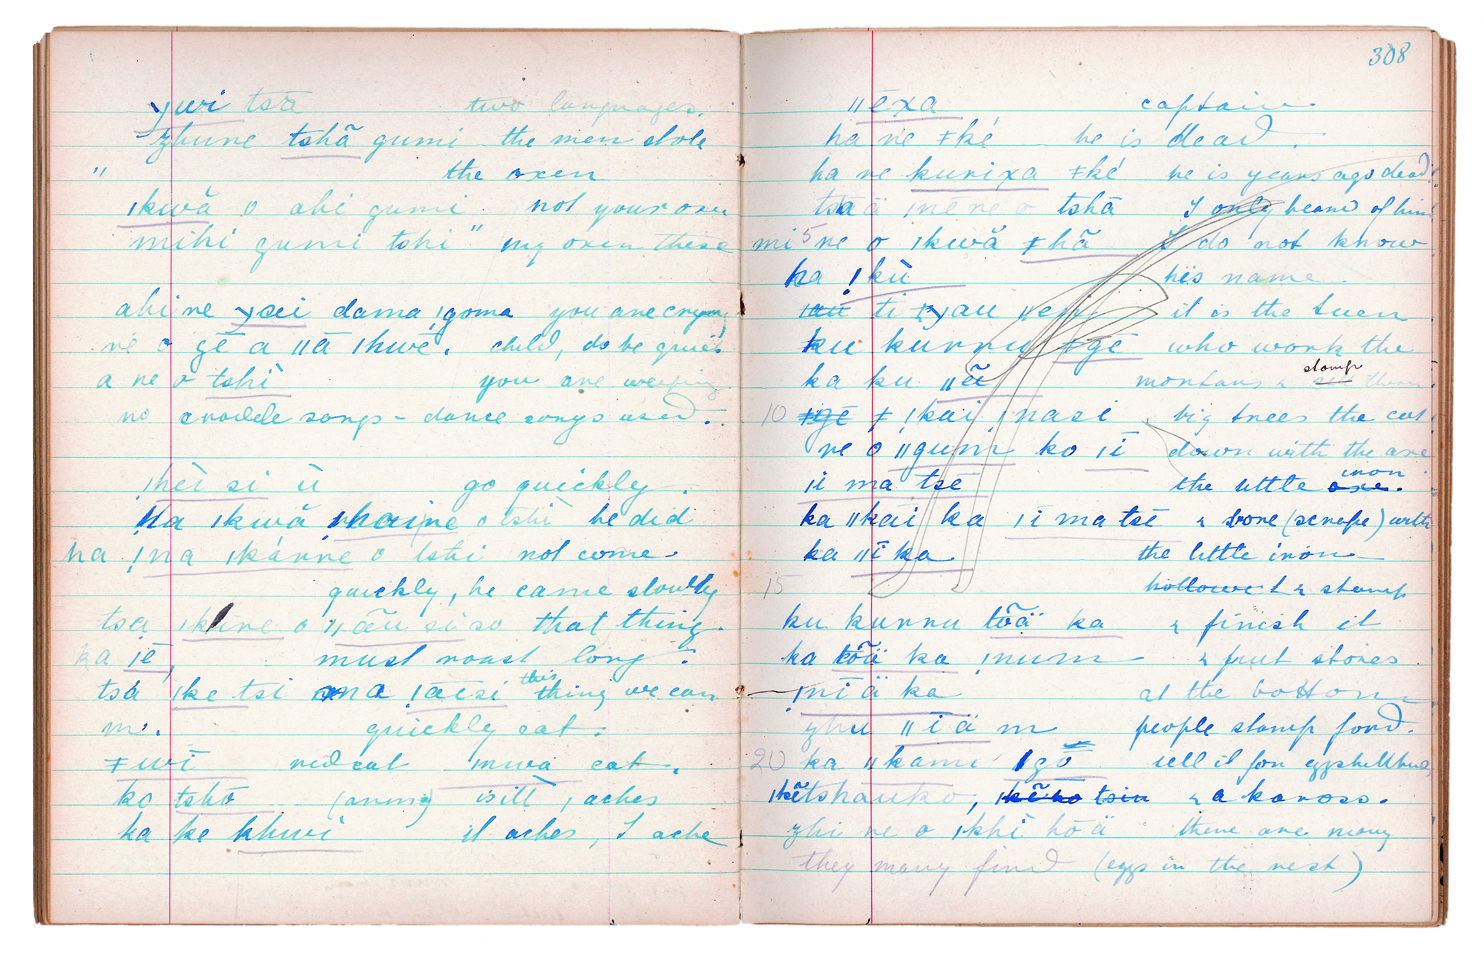 ywi tsā two languages.
zhune tshã gumi the men stole
" the oxen
ǀkwā o ahi gumi not your oxen
mihi gumi tshi " my oxen these
ahi ne dama ǀgoma you are crying
ne o gē a ǁā ǀkwē. child, do be quiet
a ne o tshi you are weeping
no cradle songs – dance songs used.
ǀhēi si ù go quickly.
ha ǀkwā ne o tshi he did
ha ǃna ǀkárre o tshi not come
quickly, he came slowly
tsa o ǁāu si so that thing.
ka ǀē must roast long.
tsá ǀke tsi ǃāisi this thing we can
m. quickly eat.
ǂwī red cat mwa eat.
ko tshō (arung) is ill, aches
ka ke khwi it aches, I ache
308
ǁēxa captain.
ha ne ǂké he is dead.
ha ne kurixa ǂké he is years ago dead.
tsa ä ǀnē ne o tshā I only heard of him
mi 5 ne o ǀkwā ǂhā I do not know
ha ǃkù his name.
ti it is the
ku kurru ǂgē who work the
ka ku ǁēi stamp
10 ǂ ǀkai ǀnasi big trees the cut
ne o ǁgum ko ǀī down with the axe
ǀi ma tsē the little axe. iron
ka ǁkāi ka ǀi ma tsē & bore (scrape) with
ka ǁī ka the little iron
15 hollowe t & stamp
ku kurru tõä ka & finish it
ka tõä ka ǀnum & put stones
ǀnī ä ka at the bottom
zhu ǁī ä m people stamp food.
20 ka ǁkami ǀgō sell it for eggshellbeads
ǀkētshauko, tsin & a kaross.
zhi ne o ǀkhī hō ä there are many
they many find (eggs in the nest)